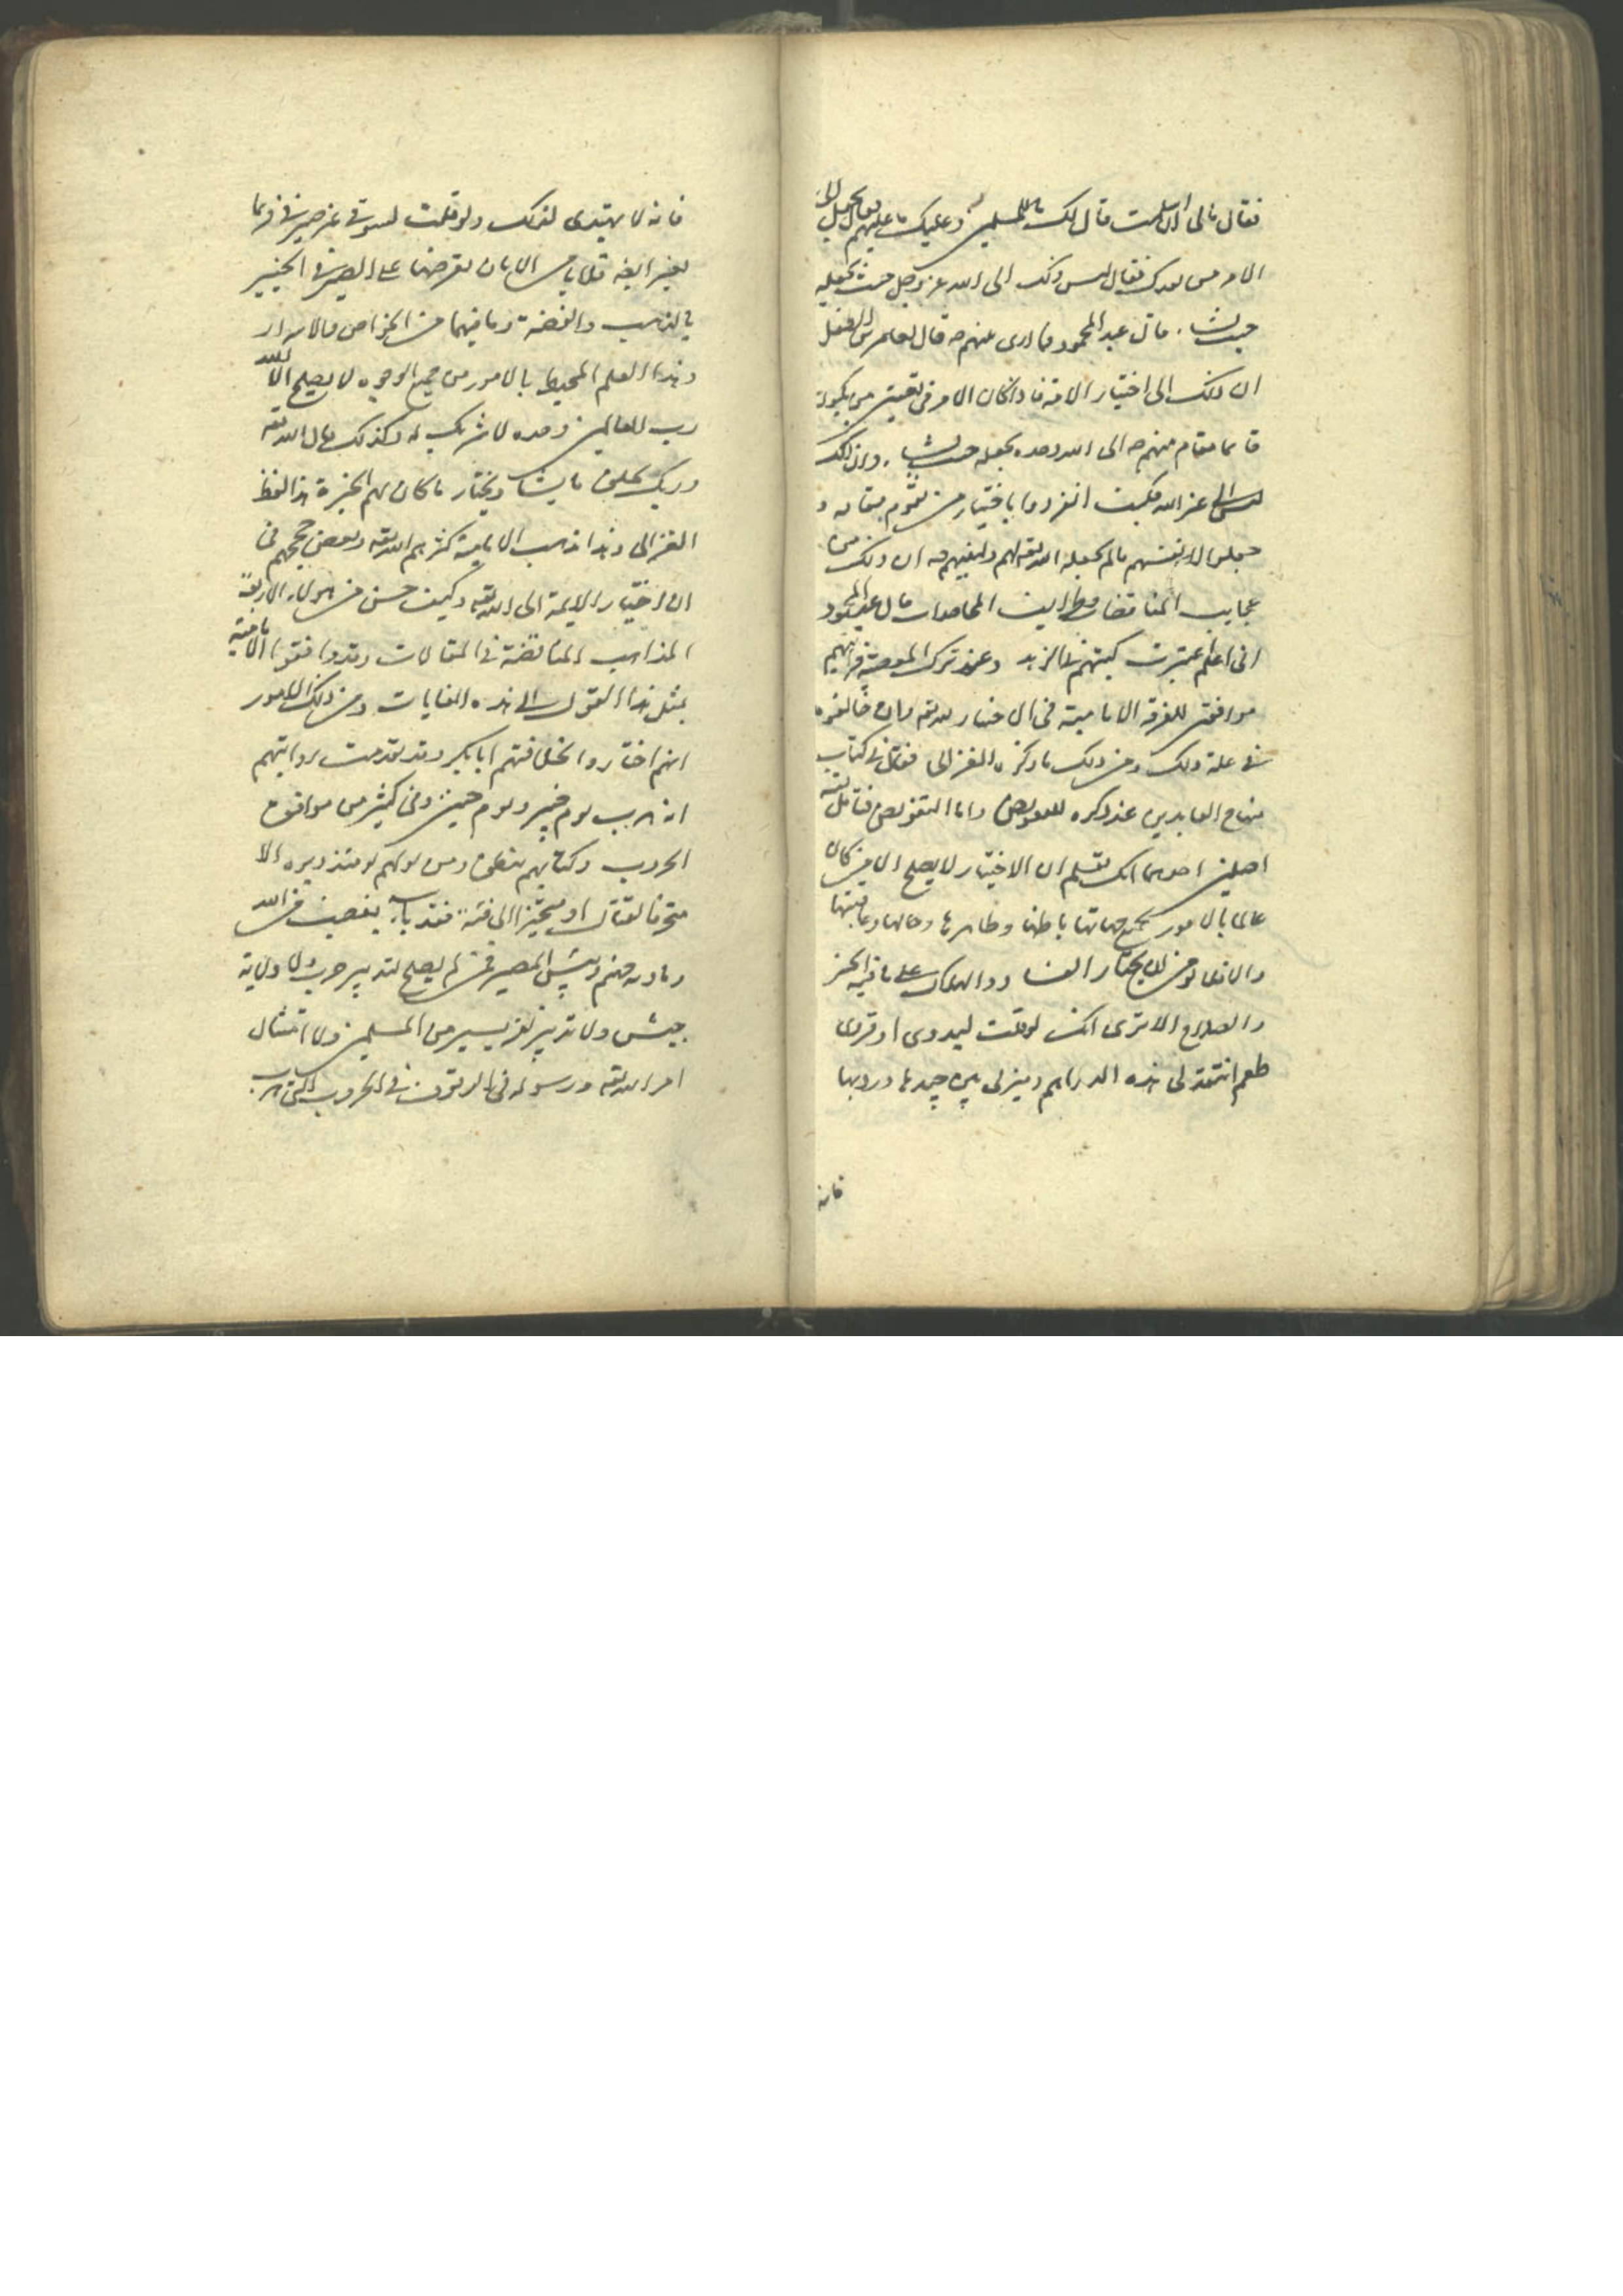 فقال مالى ان اسلمت قال لك ما للمسلمين وعليك ما عليهم قال تجعل لى
الامر من بعدك فقال ليس ذلك الى الله عز وجل حيث يجعله
حيث يشا . قال عبد المحمود فما ارى عنهم صه قال لعامر بن الطفيل
ان ذلك الى اختيار الامة فاذا كان الامر فى تعيين من يكون
قائما مقام منهم صه الى الله وحده يجعله حيث يشا . وان ذلك
ليس الى غير الله فكيف انفردوا باختيار من يقوم مقامه و
جعلوا لانفسهم ما لم يجعله الله تعه لهم ولنبيهم صه ان ذلك من
عجايب المناقضات وطرايف المحاصوات قال عبد المحمود
انى اعلم اعتبرت كيتهم فى الزهد وعند ترك المعصية فرايتهم
موافقين للفرقة الامامية فى ان الاختيار لله تعه وان خالفوه
فى علة ذلك ومن ذلك ما ذكره الغزالى فقال فى كتاب
منهاج العابدين عند ذكره للتفويض واما التفويض فتامل فيه
اصلين احدهما انك تعلم ان الاختيار لا يصلح الا لمن كان
عالما بالامور بجميع جهاتها باطنها وظاهرها وحالها وعاقبتها
والا فلا يؤمن ان يختار الفساد والهلاك على ما فيه الخير
والصلاح الا ترى انك لو قلت لبدوى او قروى
طعم انتقد لى هذه الدراهم وميز لى بين جيدها ورديها
فانه
فانه لا يهتدى لذلك ولو قلت لسوقى غير صيرفى فربما
يعسر ايضه فلا تامن الا بان تعرضها على الصيرفى الخبير
بالذهب والفضة وما فيهما من الخواص والاسرار
وهذا العلم المحيط بالامور من جميع الوجوه لا يصلح الا لله
رب العالمين وحده لا شريك له وكذلك قال الله تعه
وربك يخلق ما يشا ويختار ما كان لهم الخيرة هذا لفظ
الغزالى وهذا مذهب الامامية كثرهم الله تعه وبعض حججهم فى
ان اختيار الايمة الى الله تعه وكيف حسن من هولاء الاربعة
المذاهب المناقضة فى المقالات وقد وافقوا الامامية
بمثل هذا القول الى هذه الغايات ومن ذلك الامور
انهم اختاروا لخلافتهم ابا بكر وقد تقدمت روايتهم
انه هرب يوم خيبر ويوم حنين وفى كثير من مواقف
الحروب وكتابهم يتضمن ومن يولهم يومئذ دبره الا
متحرفا لقتال او متحيزا الى فئة فقد باء بغضب من الله
وماواه جهنم وبئس المصير فمن لم يصلح لتدبير حرب ولا ولاية
جيش ولا تدبير نفر يسير من المسلمين ولا امتثال
امر الله تعه ورسوله فى الوقوف فى الحروب التى هرب